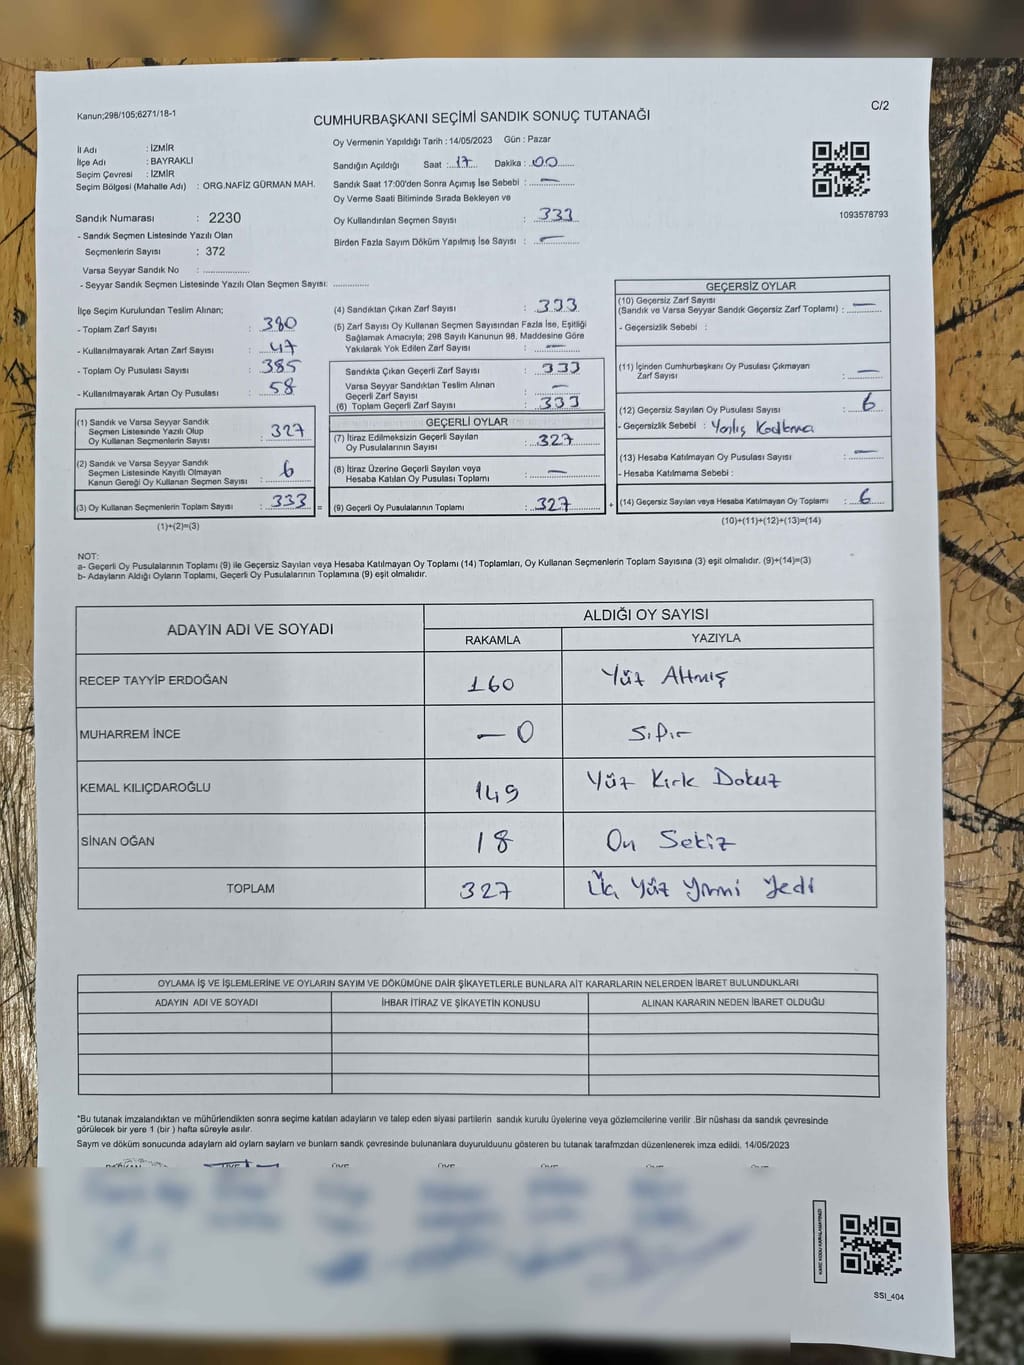 Kanun;298/105;6271/18-1
C/2
CUMHURBAŞKANI SEÇİMİ SANDIK SONUÇ TUTANAĞI
Oy Vermenin Yapıldığı Tarih : 14/05/2023 Gün : Pazar
İl Adı : İZMİR
İlçe Adı : BAYRAKLI
Seçim Çevresi : İZMİR
Seçim Bölgesi (Mahalle Adı) : ORG.NAFİZ GÜRMAN MAH.
Sandığın Açıldığı Saat :..17... Dakika :..00......
Sandık Saat 17:00'den Sonra Açımış İse Sebebi : —
Oy Verme Saati Bitiminde Sırada Bekleyen ve
Oy Kullandırılan Seçmen Sayısı : 333
Birden Fazla Sayım Döküm Yapılmış İse Sayısı : —
1093578793
Sandık Numarası : 2230
- Sandık Seçmen Listesinde Yazılı Olan
Seçmenlerin Sayısı : 372
Varsa Seyyar Sandık No : ..................
- Seyyar Sandık Seçmen Listesinde Yazılı Olan Seçmen Sayısı: ..............
İlçe Seçim Kurulundan Teslim Alınan;
- Toplam Zarf Sayısı : 380
- Kullanılmayarak Artan Zarf Sayısı : 47
- Toplam Oy Pusulası Sayısı : 385
- Kullanılmayarak Artan Oy Pusulası : 58
(1) Sandık ve Varsa Seyyar Sandık
Seçmen Listesinde Yazılı Olup
Oy Kullanan Seçmenlerin Sayısı : 327
(2) Sandık ve Varsa Seyyar Sandık
Seçmen Listesinde Kayıtlı Olmayan
Kanun Gereği Oy Kullanan Seçmen Sayısı : 6
(3) Oy Kullanan Seçmenlerin Toplam Sayısı : 333 =
(1)+(2)=(3)
(4) Sandıktan Çıkan Zarf Sayısı : 333
(5) Zarf Sayısı Oy Kullanan Seçmen Sayısından Fazla İse, Eşitliği
Sağlamak Amacıyla; 298 Sayılı Kanunun 98. Maddesine Göre
Yakılarak Yok Edilen Zarf Sayısı : —
Sandıkta Çıkan Geçerli Zarf Sayısı : 333
Varsa Seyyar Sandıktan Teslim Alınan
Geçerli Zarf Sayısı : —
(6) Toplam Geçerli Zarf Sayısı : 333
GEÇERLİ OYLAR
(7) İtiraz Edilmeksizin Geçerli Sayılan
Oy Pusulalarının Sayısı : 327
(8) İtiraz Üzerine Geçerli Sayılan veya
Hesaba Katılan Oy Pusulası Toplamı : —
(9) Geçerli Oy Pusulalarının Toplamı : 327 +
GEÇERSİZ OYLAR
(10) Geçersiz Zarf Sayısı
(Sandık ve Varsa Seyyar Sandık Geçersiz Zarf Toplamı) : —
- Geçersizlik Sebebi :
(11) İçinden Cumhurbaşkanı Oy Pusulası Çıkmayan
Zarf Sayısı : —
(12) Geçersiz Sayılan Oy Pusulası Sayısı : 6
- Geçersizlik Sebebi : Yanlış Kodlama
(13) Hesaba Katılmayan Oy Pusulası Sayısı : —
- Hesaba Katılmama Sebebi :
(14) Geçersiz Sayılan veya Hesaba Katılmayan Oy Toplamı : 6
(10)+(11)+(12)+(13)=(14)
NOT:
a- Geçerli Oy Pusulalarının Toplamı (9) ile Geçersiz Sayılan veya Hesaba Katılmayan Oy Toplamı (14) Toplamları, Oy Kullanan Seçmenlerin Toplam Sayısına (3) eşit olmalıdır. (9)+(14)=(3)
b- Adayların Aldığı Oyların Toplamı, Geçerli Oy Pusulalarının Toplamına (9) eşit olmalıdır.
ADAYIN ADI VE SOYADI
ALDIĞI OY SAYISI
RAKAMLA YAZIYLA
RECEP TAYYİP ERDOĞAN 160 Yüz Altmış
MUHARREM İNCE — 0 Sıfır
KEMAL KILIÇDAROĞLU 149 Yüz Kırk Dokuz
SİNAN OĞAN 18 On Sekiz
TOPLAM 327 Yüz Yirmi Yedi
OYLAMA İŞ VE İŞLEMLERİNE VE OYLARIN SAYIM VE DÖKÜMÜNE DAİR ŞİKAYETLERLE BUNLARA AİT KARARLARIN NELERDEN İBARET BULUNDUKLARI
ADAYIN ADI VE SOYADI İHBAR İTİRAZ VE ŞİKAYETİN KONUSU ALINAN KARARIN NEDEN İBARET OLDUĞU
*Bu tutanak imzalandıktan ve mühürlendikten sonra seçime katılan adayların ve talep eden siyasi partilerin sandık kurulu üyelerine veya gözlemcilerine verilir .Bir nüshası da sandık çevresinde
görülecek bir yere 1 (bir ) hafta süreyle asılır.
Sayım ve döküm sonucunda adayların ald oyların sayların ve bunların sandk çevresinde bulunanlara duyurulduunu gösteren bu tutanak tarafmzdan düzenlenerek imza edildi. 14/05/2023
SSI_404